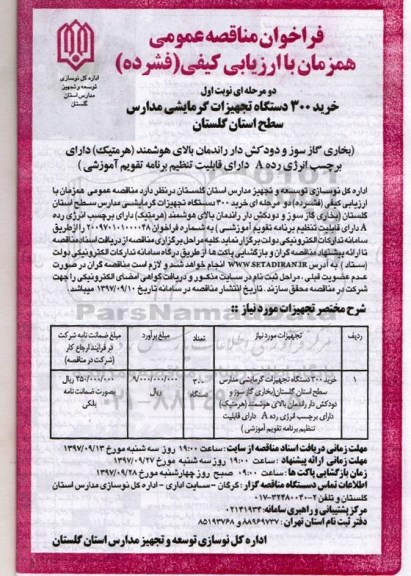 فراخوان مناقصه عمومی
همزمان با ارزیابی کیفی (فشرده)
دو مرحله ای نوبت اول
خرید ۳۰۰ دستگاه تجهیزات گرمایشی مدارس
سطح استان گلستان
اداره کل نوسازی
توسعه و تجهیز
مدارس استان
گلستان
(بخاری گاز سوز و دودکش دار راندمان بالای هوشمند (هرمتیک) دارای
برچسب انرژی رده A دارای قابلیت تنظیم برنامه تقویم آموزشی )
اداره کل نوسازی توسعه و تجهیز مدارس استان گلستان در نظر دارد مناقصه عمومی همزمان با
ارزیابی کیفی (فشرده) دو مرحله ای خرید ۳۰۰ دستگاه تجهیزات گرمایشی مدارس سطح استان
گلستان (بخاری گاز سوز و دودکش دار راندمان بالای هوشمند (هرمتیک) دارای برچسب انرژی رده
A دارای قابلیت تنظیم برنامه تقویم آموزشی ) به شماره فراخوان را از طریق
سامانه تدارکات الکترونیکی دولت برگزار نماید. کلیه مراحل برگزاری مناقصه از دریافت اسناد مناقصه
تا ارائه پیشنهاد مناقصه گران و بازگشایی پاکت ها از طریق درگاه سامانه تدارکات الکترونیکی دولت
(ستاد) به آدرس WWW.SETADIRAN.IR انجام خواهد شد و لازم است مناقصه گران در صورت
عدم عضویت قبلی، مراحل ثبت نام در سایت مذکور و دریافت گواهی امضای الکترونیکی را جهت
شرکت در مناقصه محقق سازند. تاریخ انتشار مناقصه در سامانه تاریخ ۱۳۹۷/۰۹/۱۰ میباشد.
شرح مختصر تجهیزات مورد نیاز ::
ردیف تجهیزات مورد نیاز تعداد مبلغ برآورد مبلغ ضمانت نامه شرکت
در فرآیند ارجاع کار
(شرکت در مناقصه)
۱ خرید ۳۰۰ دستگاه تجهیزات گرمایشی مدارس ۳۰۰ ۹/۰۰۰/۰۰۰/۰۰۰ ۴۵۰/۰۰۰/۰۰۰ ریال
سطح استان گلستان (بخاری گاز سوز و دستگاه ریال بصورت ضمانت نامه
دودکش دار راندمان بالای هوشمند (هرمتیک) بانکی
دارای برچسب انرژی رده A دارای قابلیت
تنظیم برنامه تقویم آموزشی )
مهلت زمانی دریافت اسناد مناقصه از سایت : ساعت ۱۹:۰۰ روز سه شنبه مورخ ۱۳۹۷/۰۹/۱۳
مهلت زمانی ارائه پیشنهاد : ساعت ۱۹:۰۰ روز سه شنبه مورخ ۱۳۹۷/۰۹/۲۷
زمان بازگشایی پاکت ها : ساعت ۰۹:۰۰ صبح روز چهارشنبه مورخ ۱۳۹۷/۰۹/۲۸
اطلاعات تماس دستگاه مناقصه گزار : گرگان - سایت اداری - اداره کل نوسازی مدارس استان
گلستان و تلفن ۲-۳۲۴۸۰۰۴۰-۰۱۷
مرکز پشتیبانی و راهبری سامانه: ۰۲۱۴۱۹۳۴
دفتر ثبت نام استان تهران : ۸۸۹۶۹۷۳۷ و ۸۵۱۹۳۷۶۸
اداره کل نوسازی توسعه و تجهیز مدارس استان گلستان